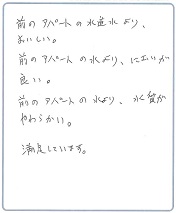 前のアパートの水道水より、
おいしい。
前のアパートの水より、においが
良い。
前のアパートの水より、水質が
やわらかい。
満足しています。